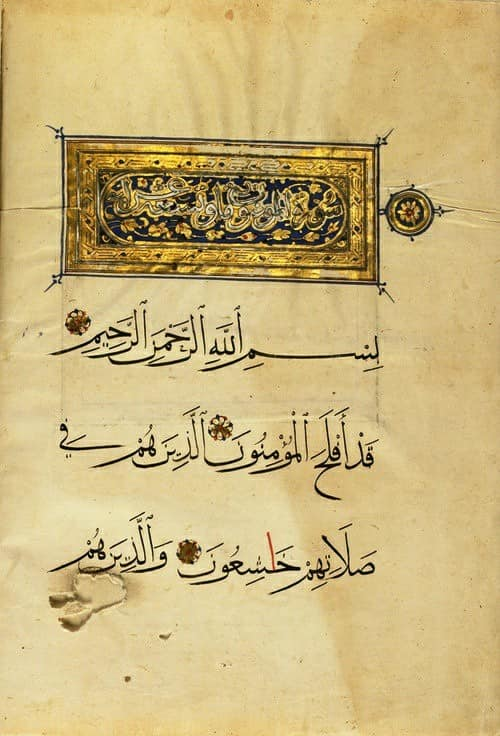 سورة المؤمنون
بِسْمِ ٱللَّهِ ٱلرَّحْمَٰنِ ٱلرَّحِيمِ
قَدْ أَفْلَحَ ٱلْمُؤْمِنُونَ ٱلَّذِينَ هُمْ فِي
صَلَاتِهِمْ خَاشِعُونَ وَٱلَّذِينَ هُمْ